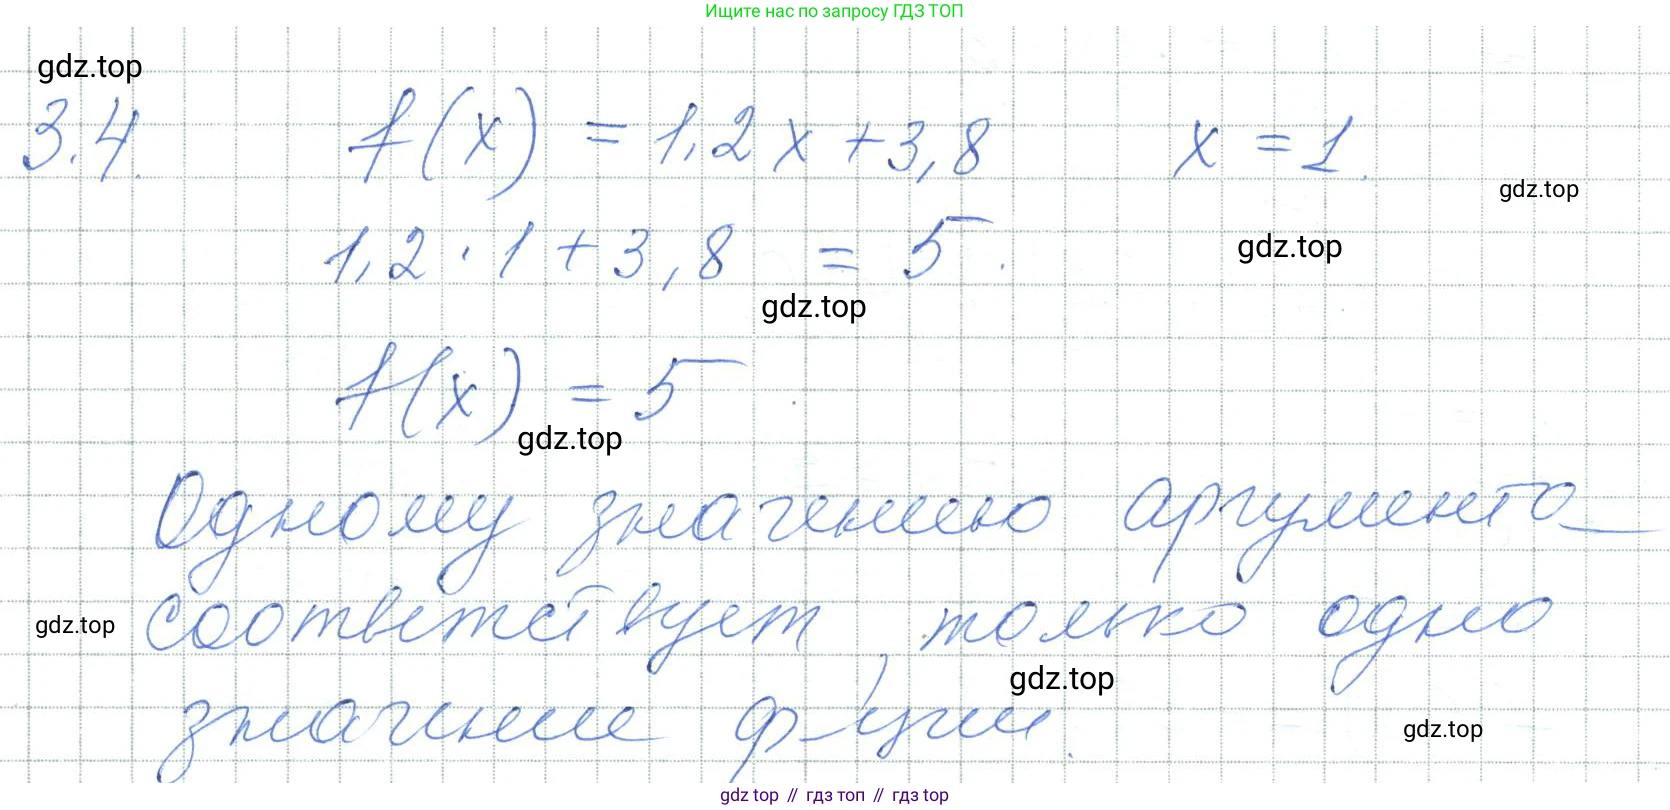 Ищите нас по запросу ГДЗ ТОП
gdz.top
3.4. f(x) = 1,2x + 3,8 x = 1.
gdz.top
1,2 · 1 + 3,8 = 5.
gdz.top
gdz.top
f(x) = 5
gdz.top
Одному значению аргумента
соответствует только одно
gdz.top
gdz.top
значение ф-ции.
gdz.top
gdz top // гдз топ // гдз top